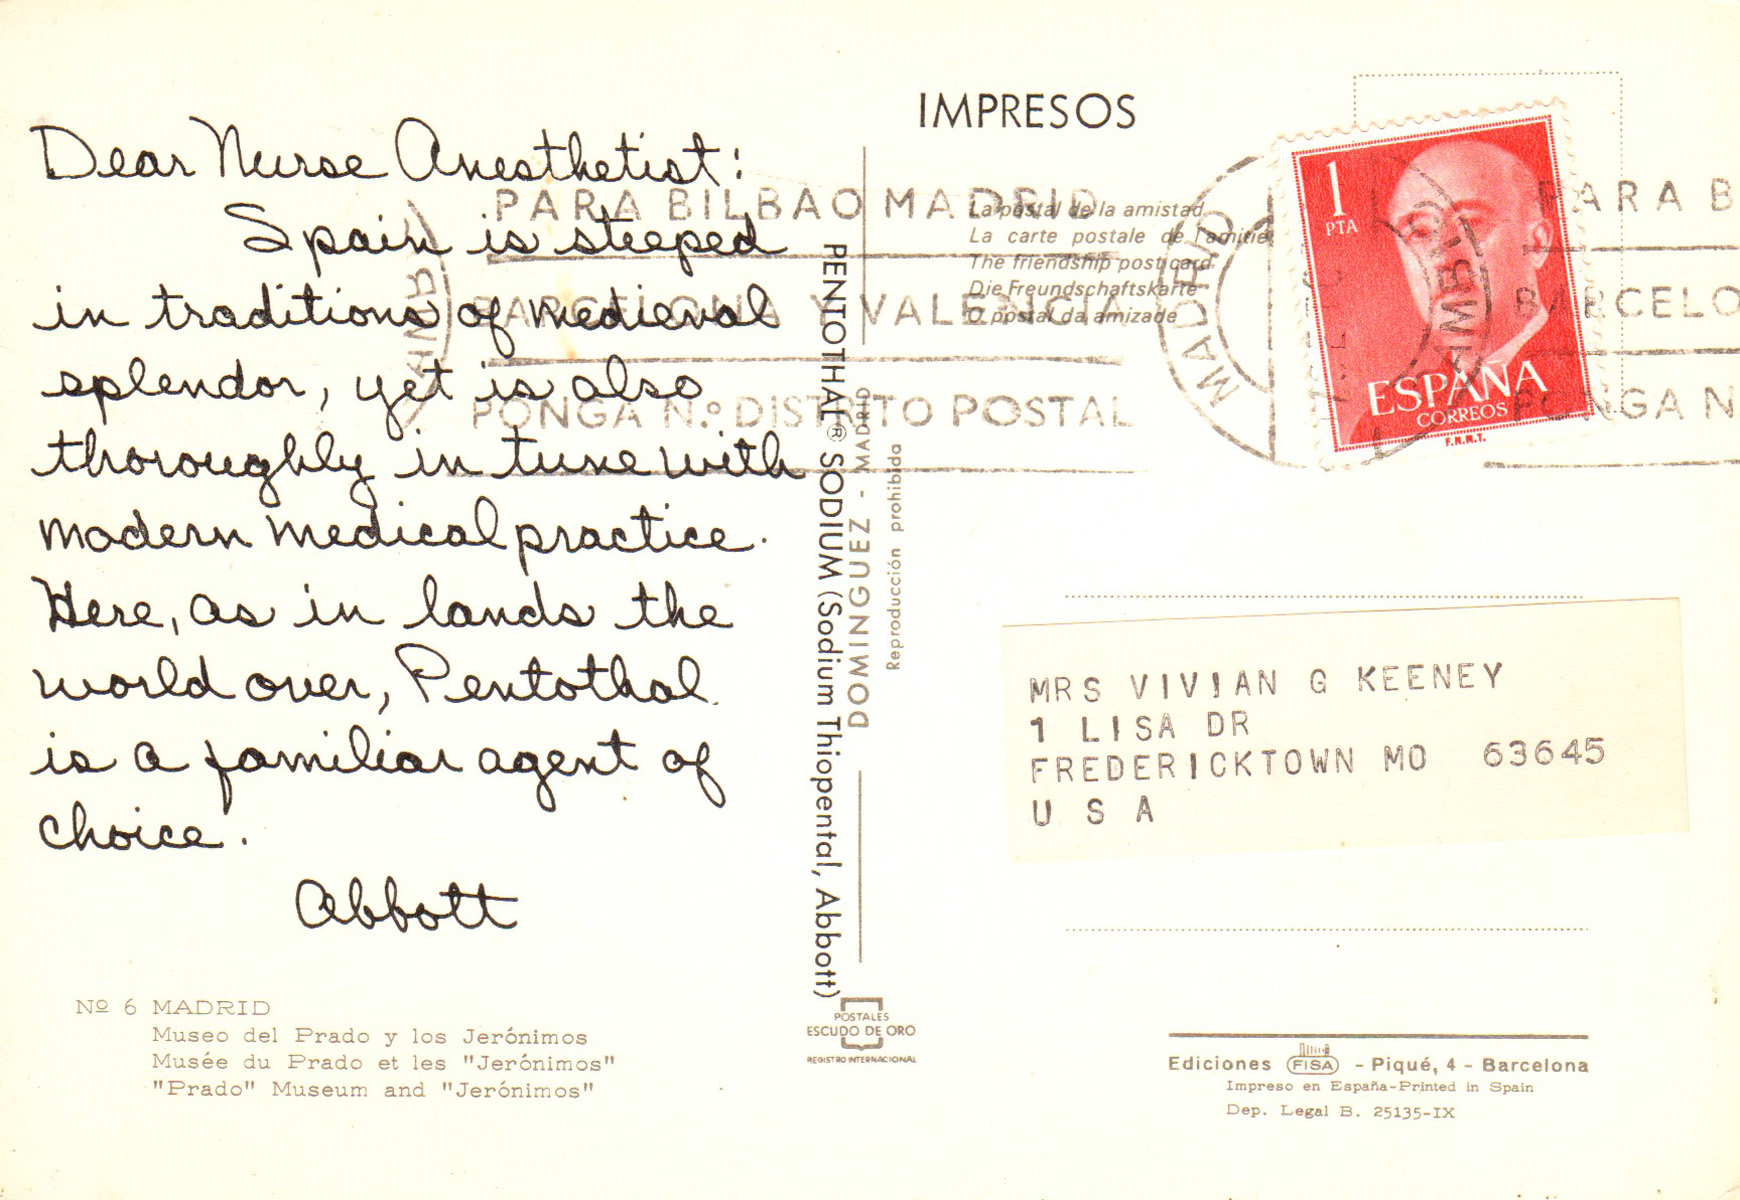 Dear Nurse Anesthetist:
Spain is steeped
in traditions of medieval
splendor, yet is also
thoroughly in tune with
modern medical practice.
Here, as in lands the
world over, Pentothal
is a familiar agent of
choice.
Abbott
Nº 6 MADRID
Museo del Prado y los Jerónimos
Musée du Prado et les "Jerónimos"
"Prado" Museum and "Jerónimos"
PENTOTHAL® SODIUM (Sodium Thiopental, Abbott)
DOMINGUEZ - MADRID
Reproducción prohibida
POSTALES
ESCUDO DE ORO
REGISTRO INTERNACIONAL
IMPRESOS
La postal de la amistad
La carte postale de l'amitié
The friendship postcard
Die Freundschaftskarte
O postal da amizade
PARA BILBAO MADRID
BARCELONA Y VALENCIA
PONGA N.º DISTRITO POSTAL
MADRID
1
PTA
ESPAÑA
CORREOS
F.N.M.T.
PARA B
BARCELO
PONGA N
MRS VIVIAN G KEENEY
1 LISA DR
FREDERICKTOWN MO 63645
U S A
Ediciones FISA - Piqué, 4 - Barcelona
Impreso en España-Printed in Spain
Dep. Legal B. 25135-IX